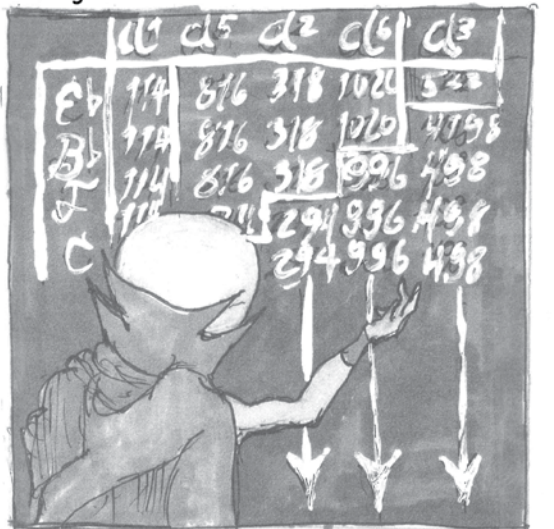 d1 d5 d2 d6 d3
Eb 114 816 318 1020 522
Bb 114 816 318 1020 498
F 114 816 318 996 498
C 294 996 498
294 996 498